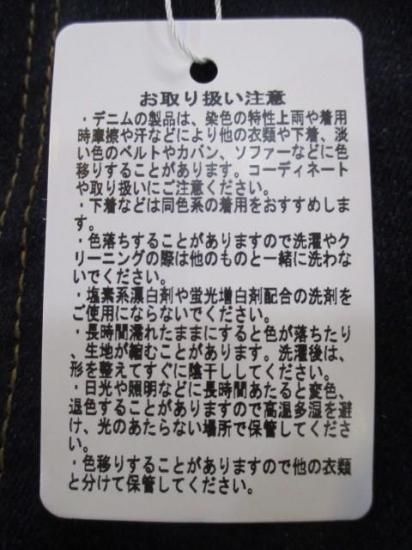 お取り扱い注意
・デニムの製品は、染色の特性上雨や着用
時摩擦や汗などにより他の衣類や下着、淡
い色のベルトやカバン、ソファーなどに色
移りすることがあります。コーディネート
や取り扱いにご注意ください。
・下着などは同色系の着用をおすすめしま
す。
・色落ちすることがありますので洗濯やク
リーニングの際は他のものと一緒に洗わな
いでください。
・塩素系漂白剤や蛍光増白剤配合の洗剤を
ご使用にならないでください。
・長時間濡れたままにすると色が落ちたり
、生地が縮むことがあります。洗濯後は、
形を整えてすぐに陰干ししてください。
・日光や照明などに長時間あたると変色、
退色することがありますので高温多湿を避
け、光のあたらない場所で保管してくださ
い。
・色移りすることがありますので他の衣類
と分けて保管してください。